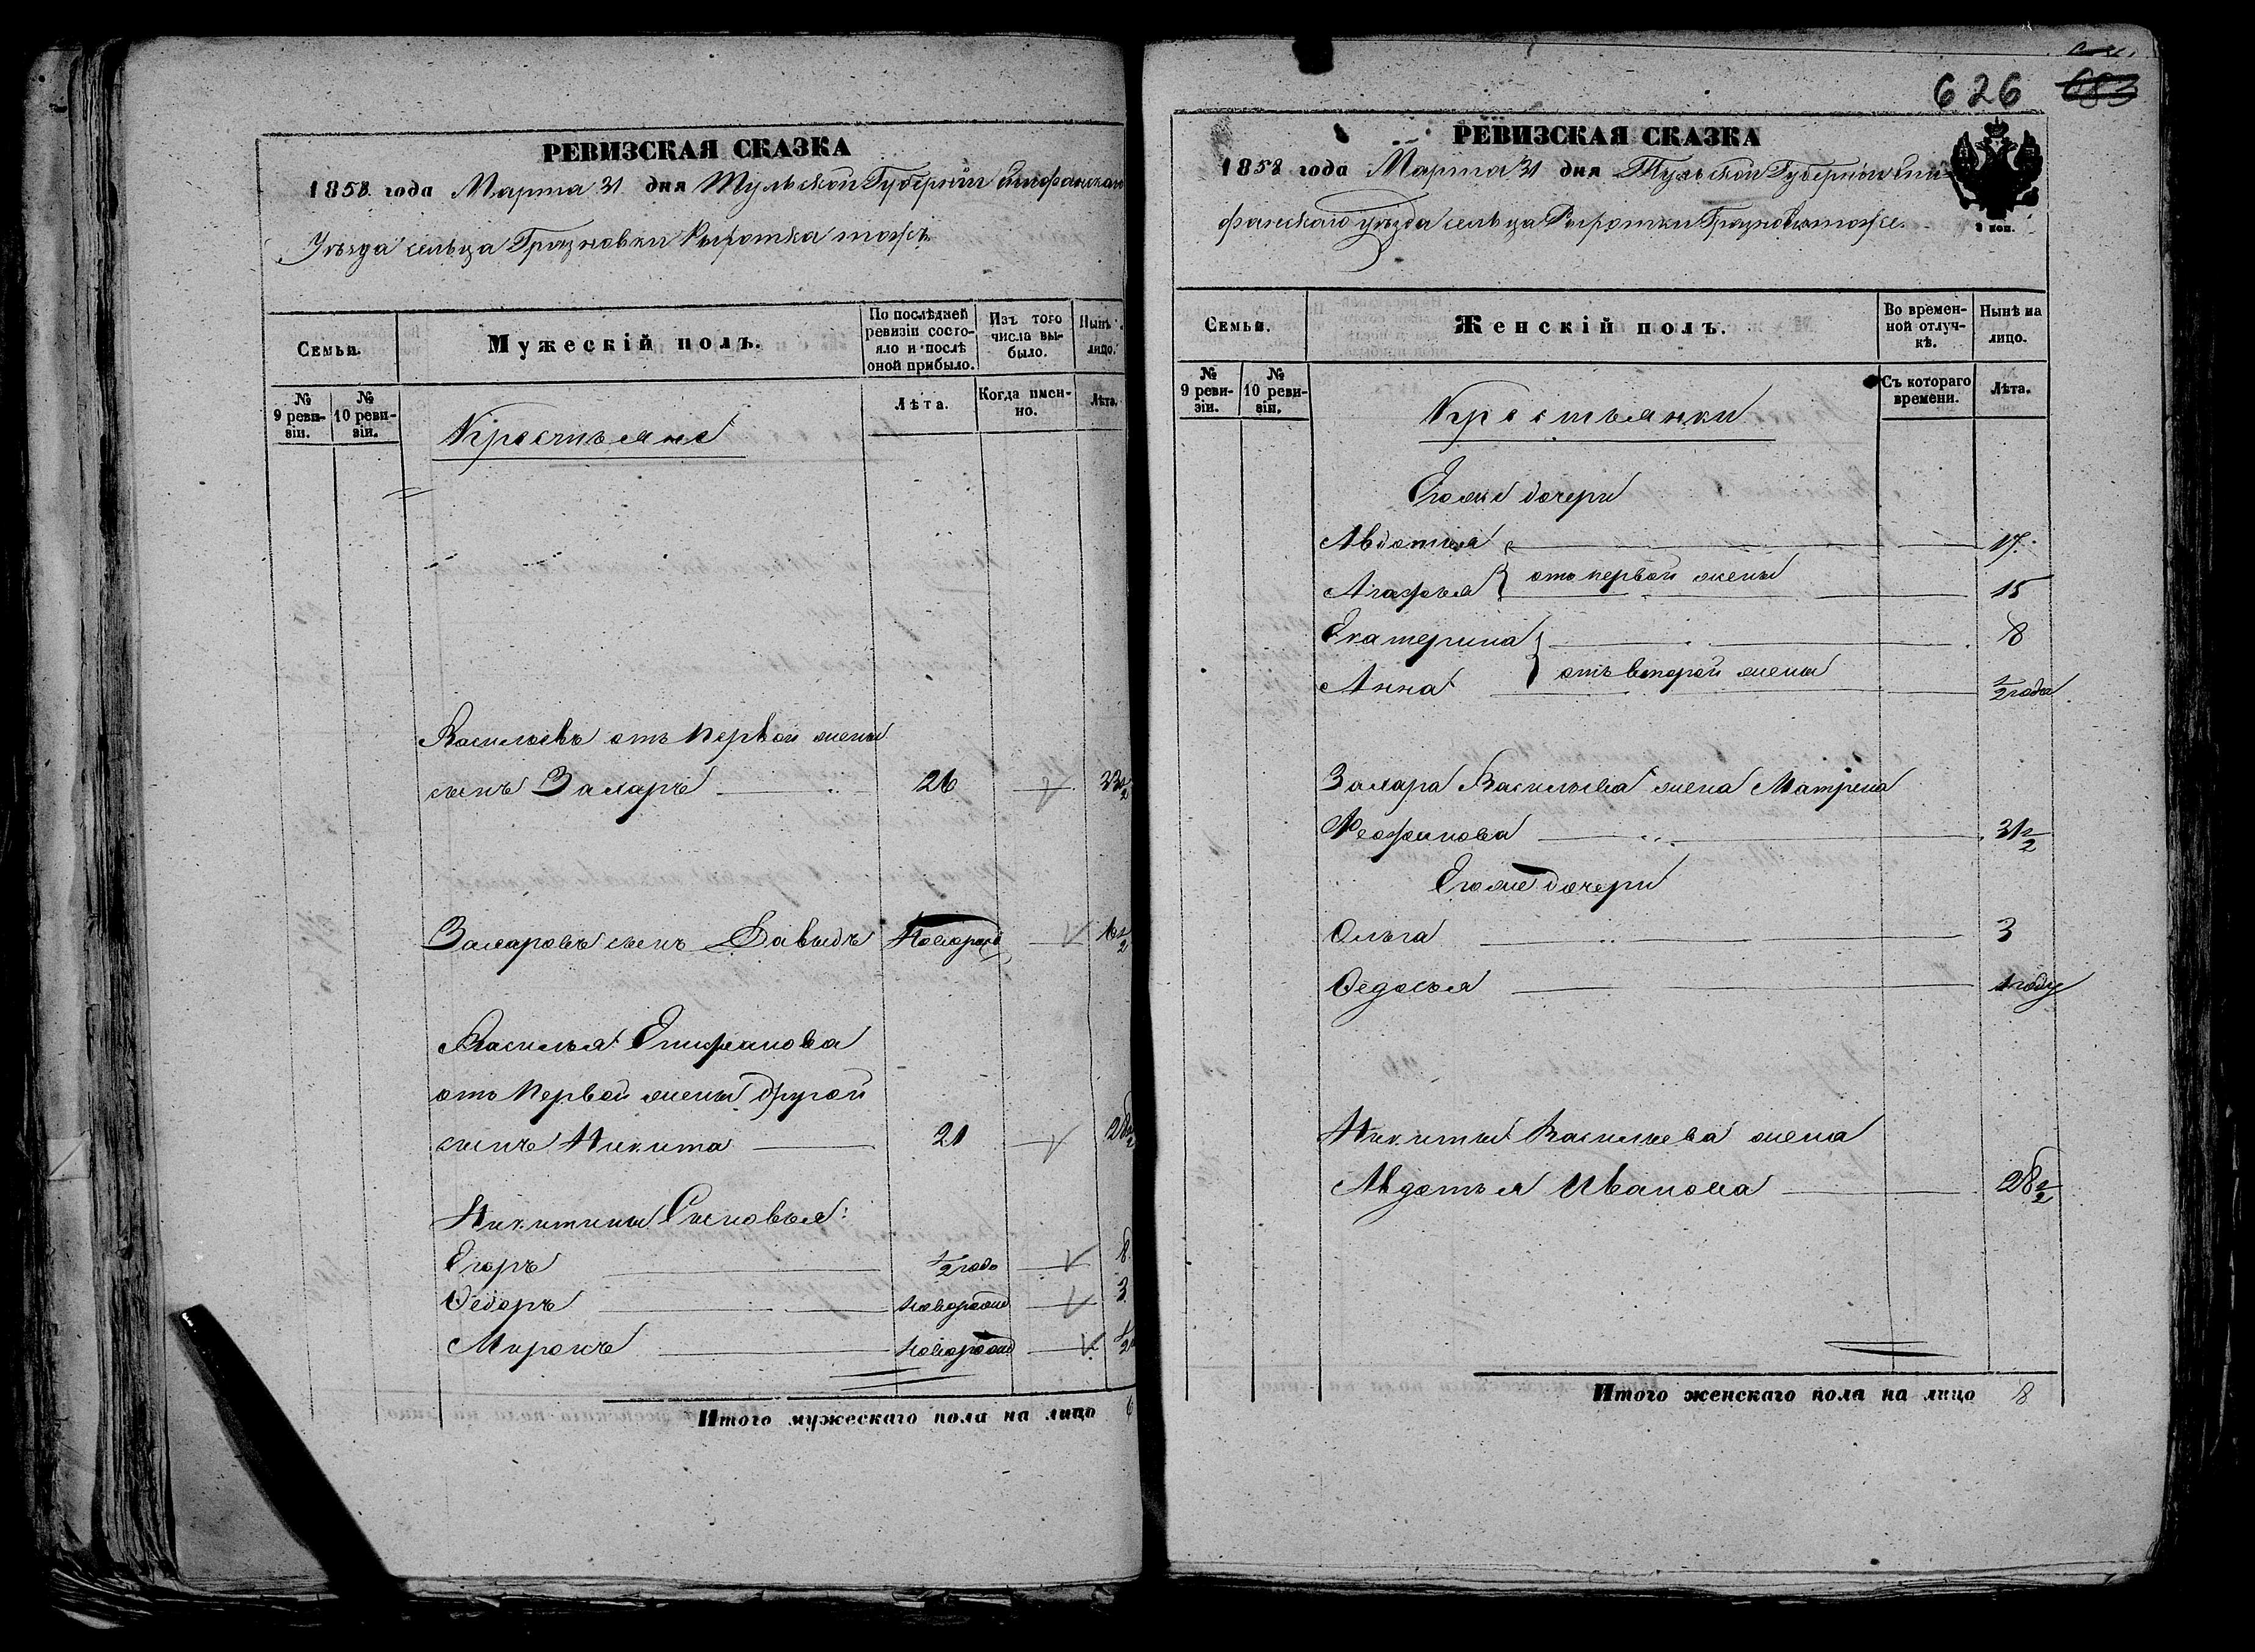 РЕВИЗСКАЯ СКАЗКА
1858 года Марта 31 дня Тульской Губернiи Епифанскаго
Уѣзда сельца Грязновки тожъ
Семьи.
Мужескiй полъ.
По послѣдней ревизiи состояло и послѣ оной прибыло.
Изъ того числа выбыло.
Нынѣ лицо.
№ 9 ревизiи.
№ 10 ревизiи.
Крестьяне
Лѣта.
Когда именно.
Лѣта.
Васильевъ отъ первой жены
сынъ Захаръ 26 33 1/2
Захаровъ сынъ Давыдъ Новорожд 6 1/2
Василья Епифанова
отъ первой жены другой
сынъ Никита 21 28 1/2
Никитины Сыновья:
Егоръ 1/2 года 8
Ѳедоръ новорожд 3
Миронъ новорожд 1/2
Итого мужескаго пола на лицо 6
626 683
РЕВИЗСКАЯ СКАЗКА
1858 года Марта 31 дня Тульской Губернiи Епи-
фанскаго уѣзда сельца Грязновка тоже.
3 коп.
Семьи.
Женскiй полъ.
Во временной отлучкѣ.
Нынѣ на лицо.
№ 9 ревизiи.
№ 10 ревизiи.
Крестьянки
Съ котораго времени.
Лѣта.
Егоже дочери
Авдотья 17
Агафья } отъ первой жены 15
Екатерина 8
Анна } отъ второй жены 1/2 года
Захара Васильева жена Матрена
Феофанова 31 1/2
Егоже дочери
Ольга 3
Ѳедосья 1 году
Никиты Васильева жена
Авдотья Иванова 28 1/2
Итого женскаго пола на лицо 8